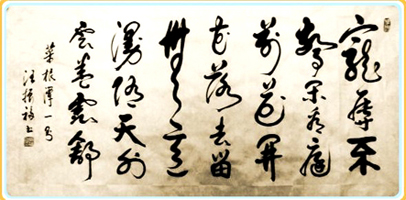 寵辱不
驚閑看庭
前花開
花落去留
無意
漫隨天外
雲卷雲舒
菜根譚一句
汪